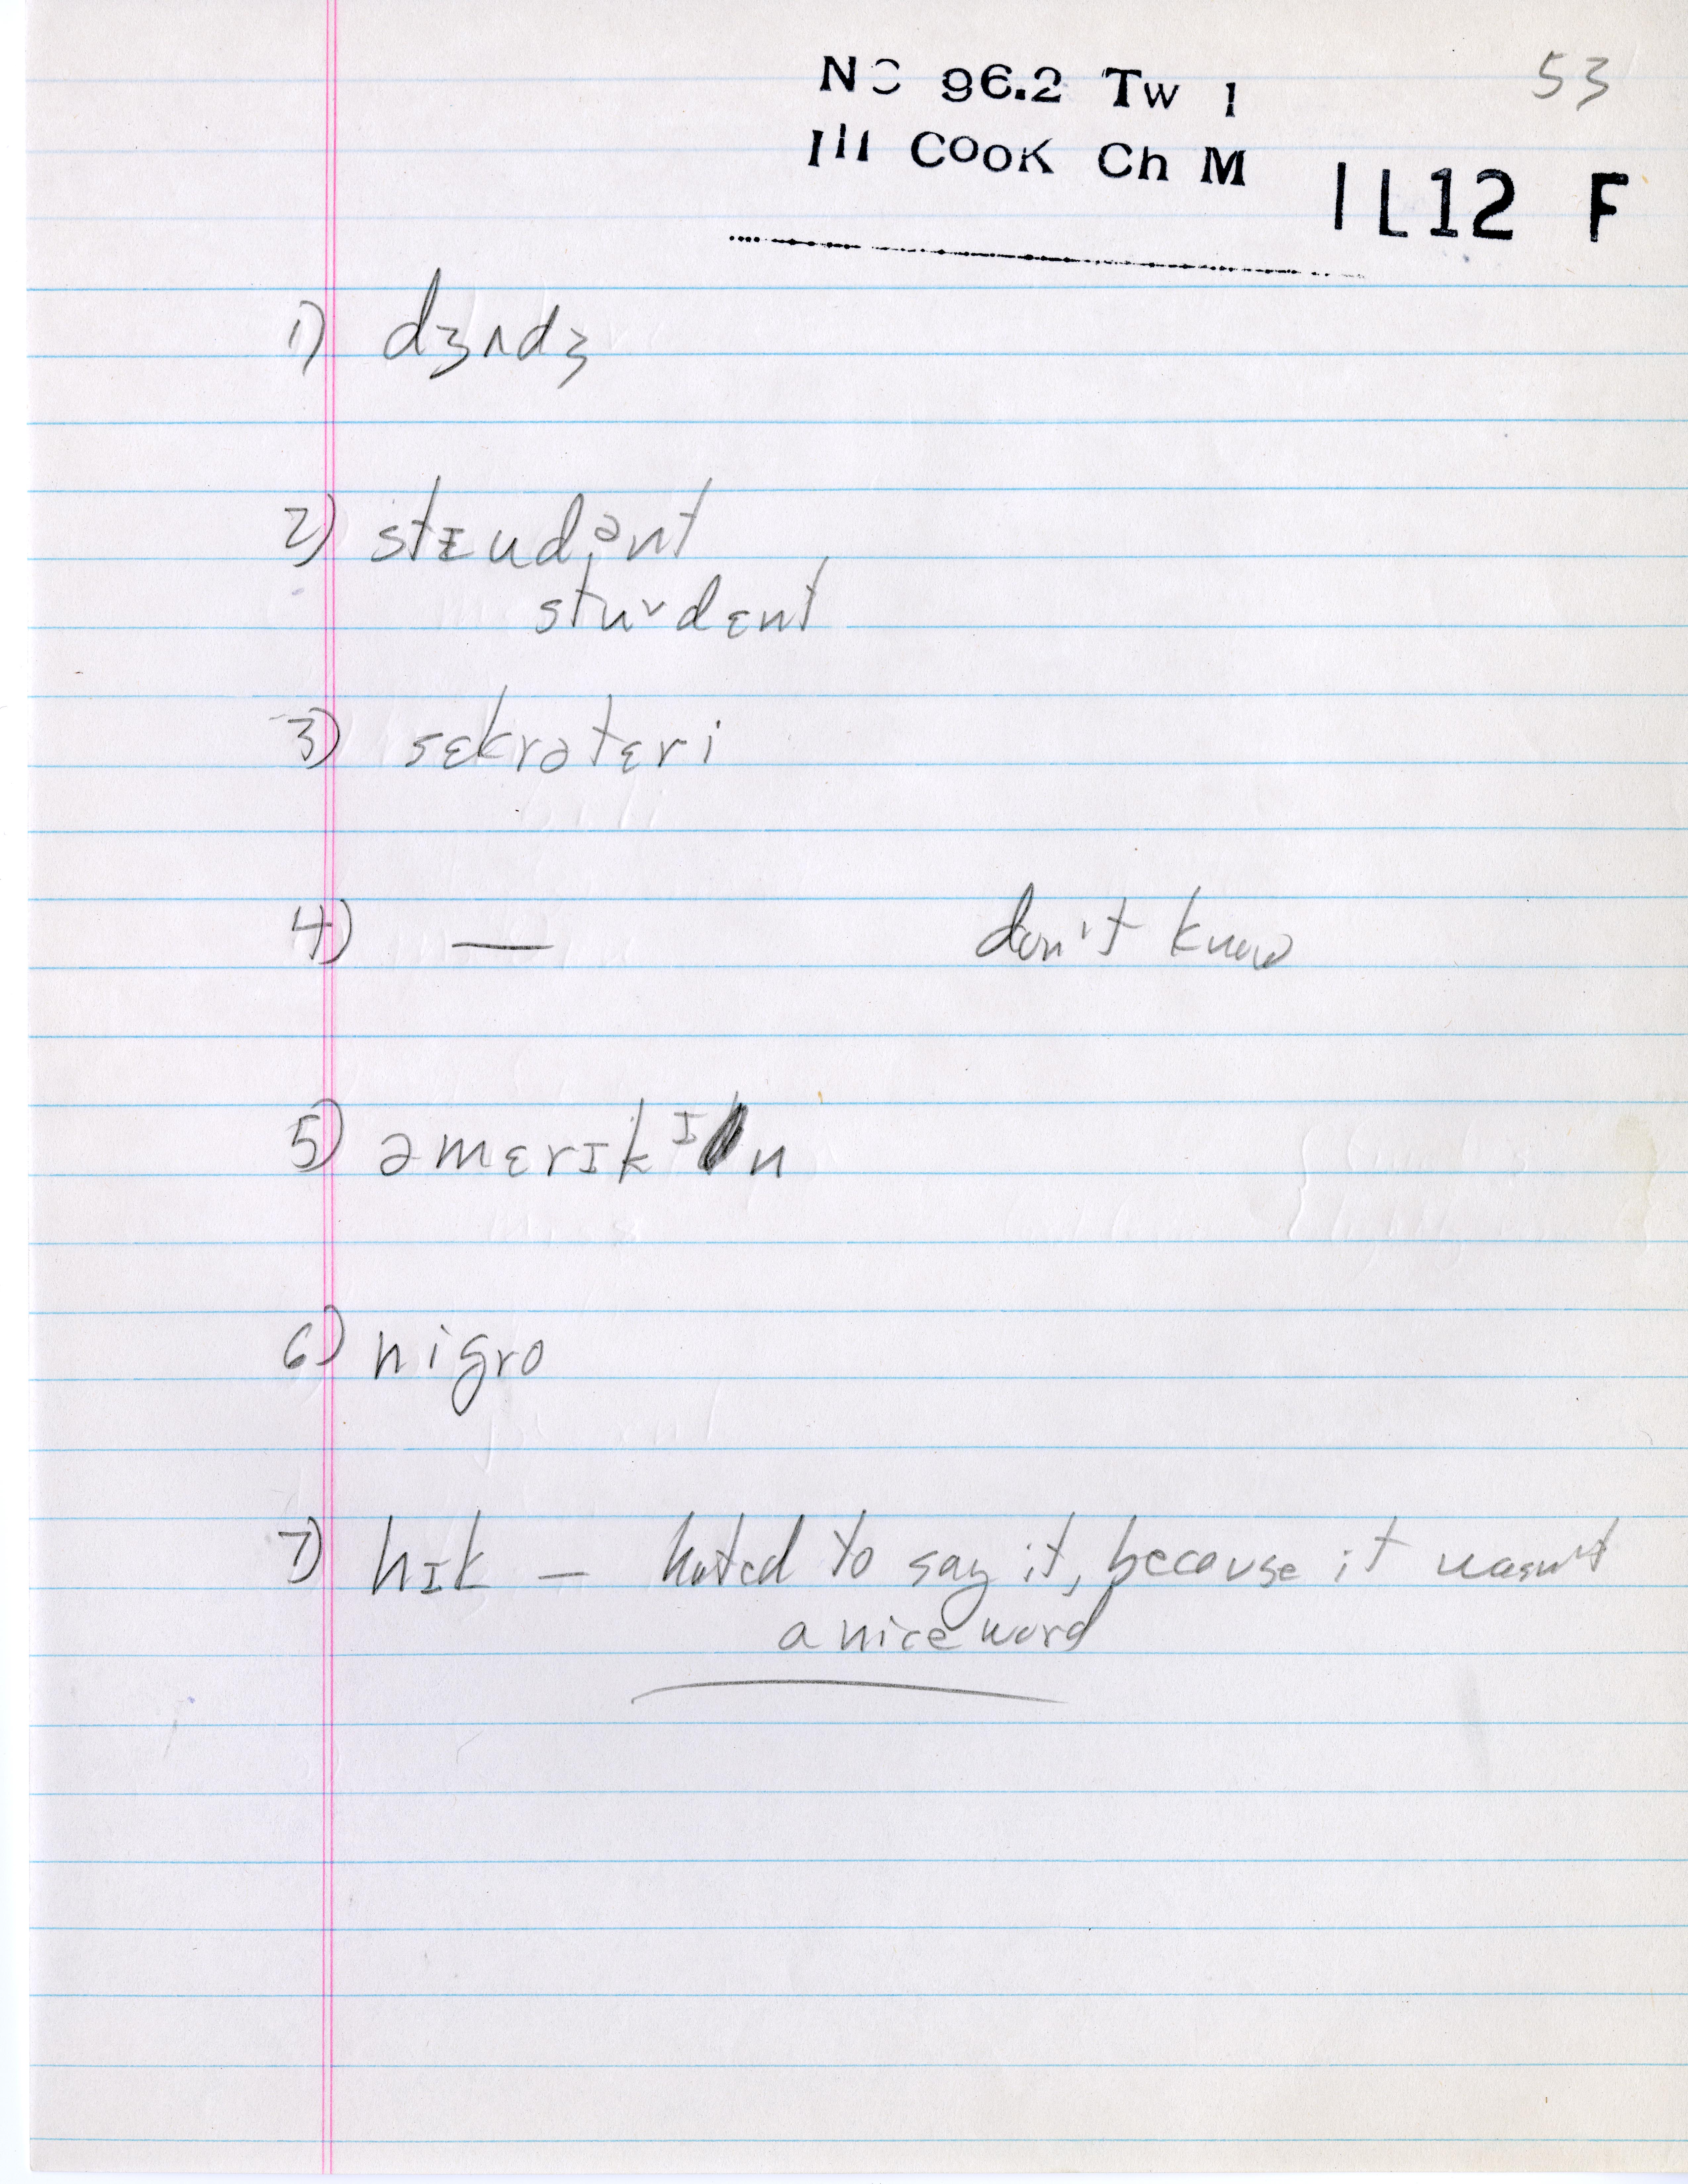 53
NC 96.2 Tw 1
Ill Cook Ch M
IL12 F
1) dʒʌdʒ
2) stɪudənt
stuˇdɛnt
3) sɛkrətɛri
4) — don't know
5) əmɛrɪkɪn
6) nigro
7) hɪk — hated to say it, because it wasn't
a nice word